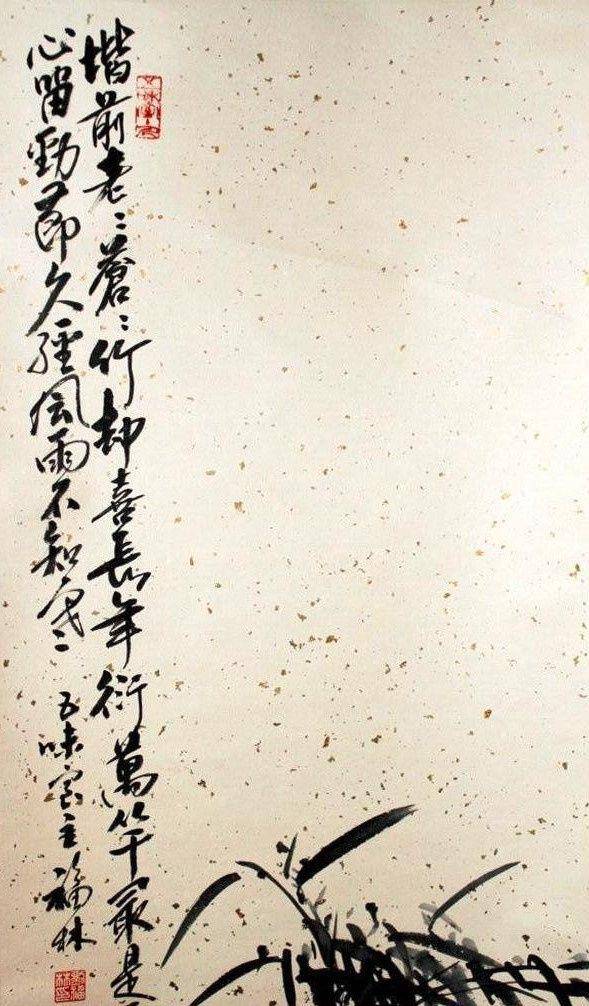 堦前老〻蒼〻竹却喜長年衍萬竿最是
心留勁節久經風雨不知寒
五味宮主福林